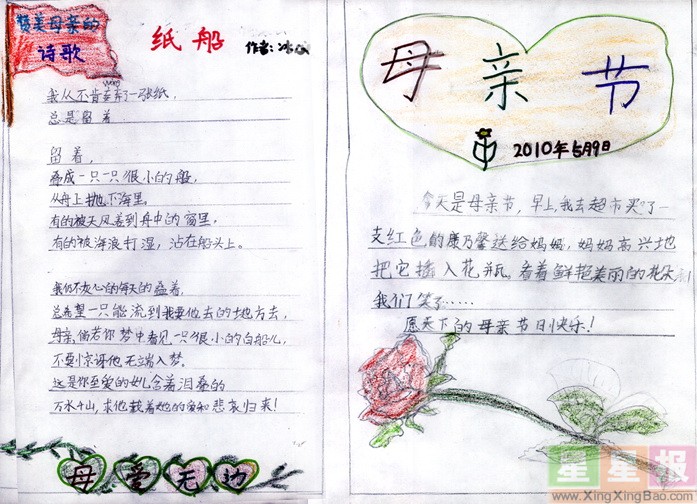 赞美母亲的
诗歌
纸船
作者:冰心
我从不肯妄弃了一张纸,
总是留着
留着,
叠成一只一只很小的船,
从舟上抛下海里。
有的被天风卷到舟中的窗里,
有的被海浪打湿,沾在船头上。
我仍不灰心的每天的叠着,
总希望一只能流到我要他去的地方去,
母亲,倘若你梦中看见一只很小的白船儿,
不要惊讶他无端入梦。
这是你至爱的女儿含着泪叠的
万水千山,求他载着她的爱和悲哀归来!
母爱无功
母亲节
2010年5月9日
今天是母亲节,早上,我去超市买了一
支红色的康乃馨送给妈妈,妈妈高兴地
把它插入花瓶。看着鲜艳美丽的花朵
我们笑了……
愿天下的母亲节日快乐!
星星报
www.XingXingBao.com